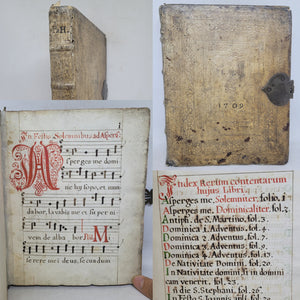 H.
1709
In Festis Solemnibus ad Aspers:
Asperges me domi
ne hysopo, et mun
dabor, lavabis me et super ni
vem dealbabor. Ps. M
serere mei deus, secundum
Index Rerum contentarum
hujus Libri
Asperges me, Solemniter, folio, 1
Asperges me, Dominicaliter, fol. 2
Antiph. de S. Martino, fol. 3.
Dominica 1. Adventus, fol. 3.
Dominica 2. Adventus, fol.
Dominica 3. Adventus, fol.
Dominica 4. Adventus, fol.
De Nativitate Domini, fol. 20.
In Nativitate domini si in domini
cam venerit, fol. 23.
In die S. Stephani, fol. 26.
In Festo S. Joannis, fol.